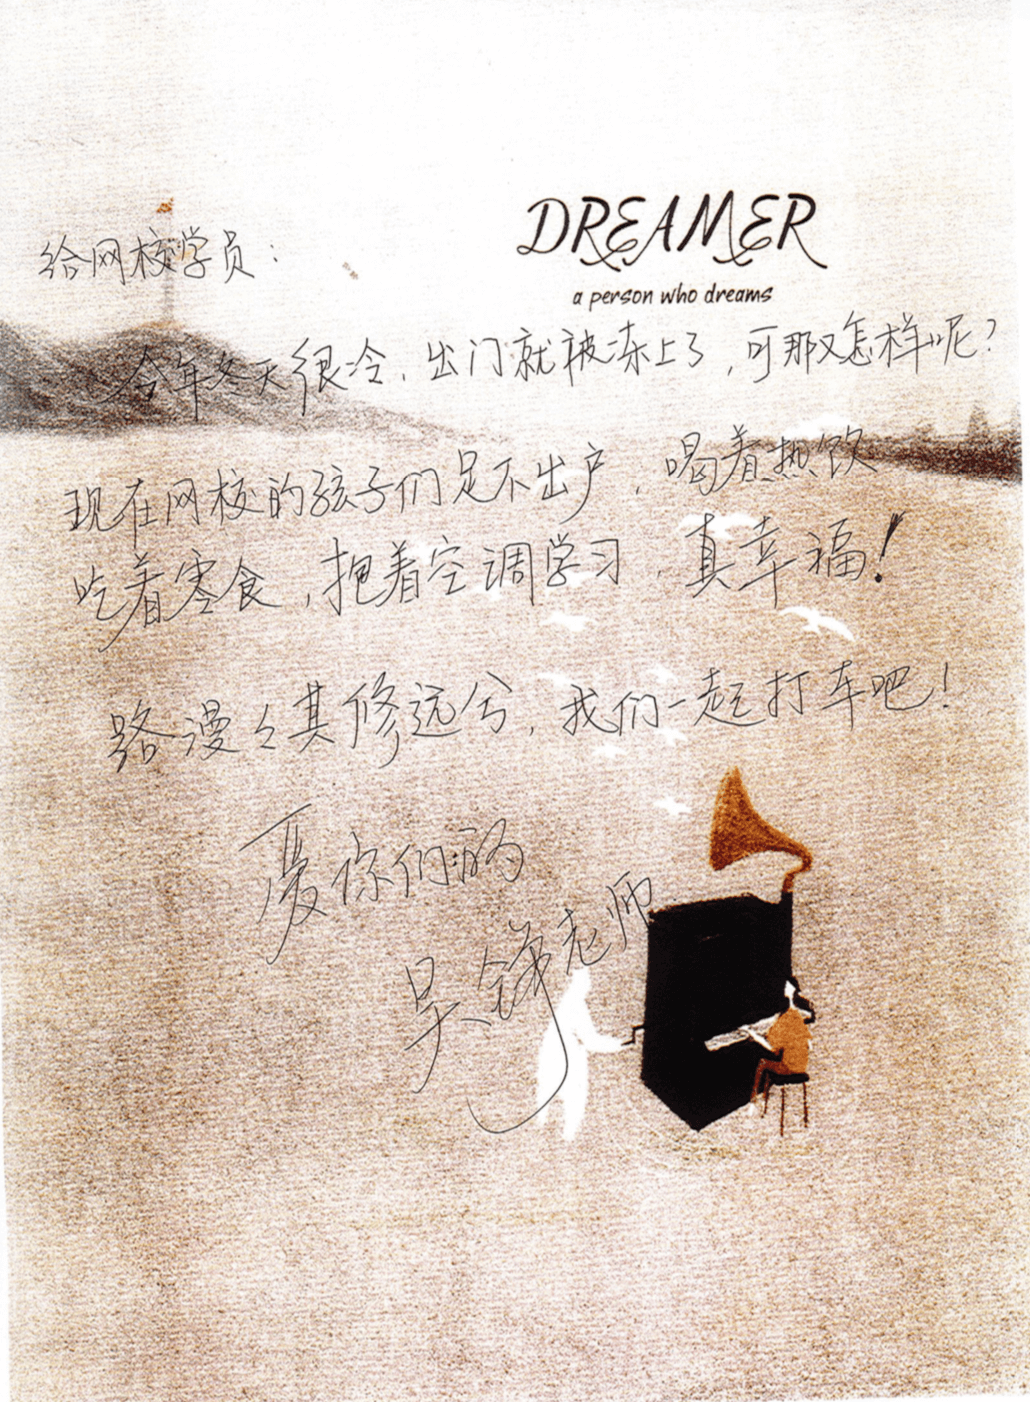 DREAMER
a person who dreams
给网校学员：
今年冬天很冷，出门就被冻上了，可那又怎样呢？
现在网校的孩子们足不出户，喝着热饮
吃着零食，抱着空调学习，真幸福！
路漫々其修远兮，我们一起打车吧！
爱你们的
吴铮老师